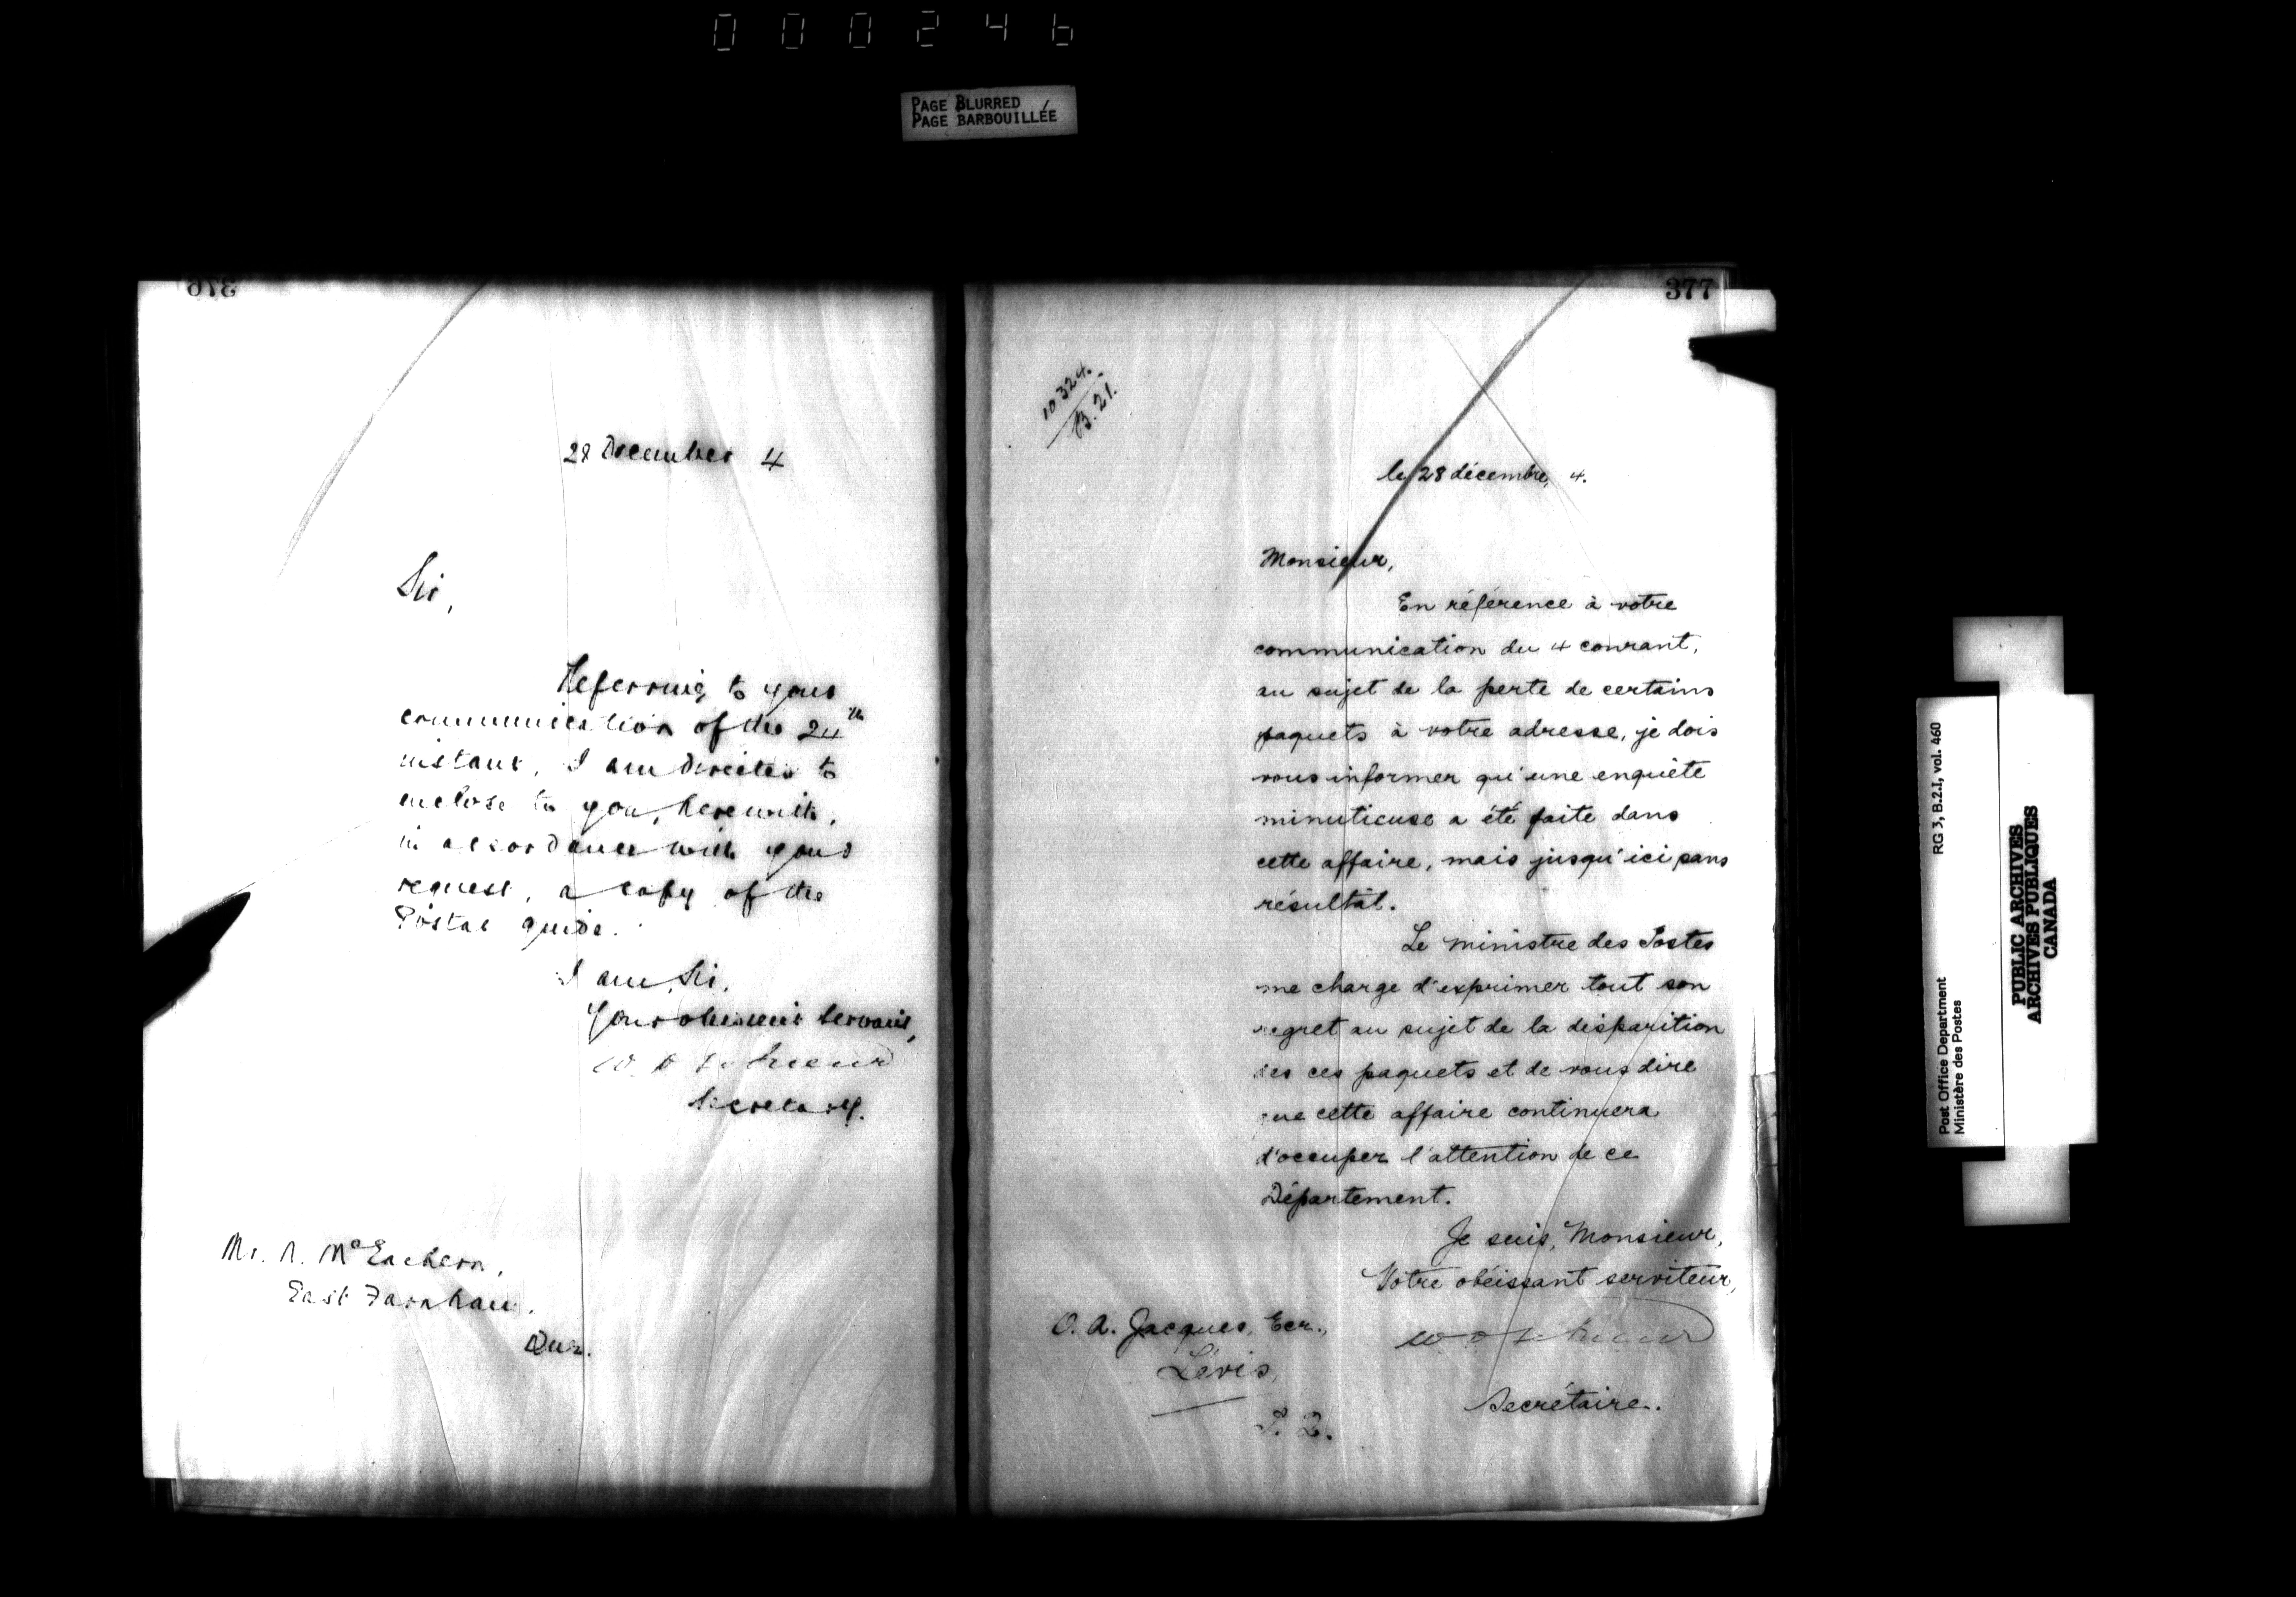 000246
PAGE BLURRED
PAGE BARBOUILLÉE
376
28 December 4
Sir,
Referring to your
communication of the 24th
instant, I am directed to
enclose to you, herewith,
in accordance with your
request, a copy of the
Postal guide.
I am, Sir,
Your obedient servant,
Secretary.
Mr. A. McEachern,
East Farnham,
Que.
377
10324.
B. 21.
le 28 décembre, 4.
Monsieur,
En référence à votre
communication du 4 courant,
au sujet de la perte de certains
paquets à votre adresse, je dois
vous informer qu'une enquête
minutieuse a été faite dans
cette affaire, mais jusqu'ici sans
résultat.
Le ministre des Postes
me charge d'exprimer tout son
regret au sujet de la disparition
des ces paquets et de vous dire
que cette affaire continuera
d'occuper l'attention de ce
Département.
Je suis, Monsieur,
Votre obéissant serviteur,
Secrétaire.
O. A. Jacques, Ecr.,
Lévis,
P. Q.
Post Office Department
Ministère des Postes
RG 3, B.2.I, vol. 460
PUBLIC ARCHIVES
ARCHIVES PUBLIQUES
CANADA